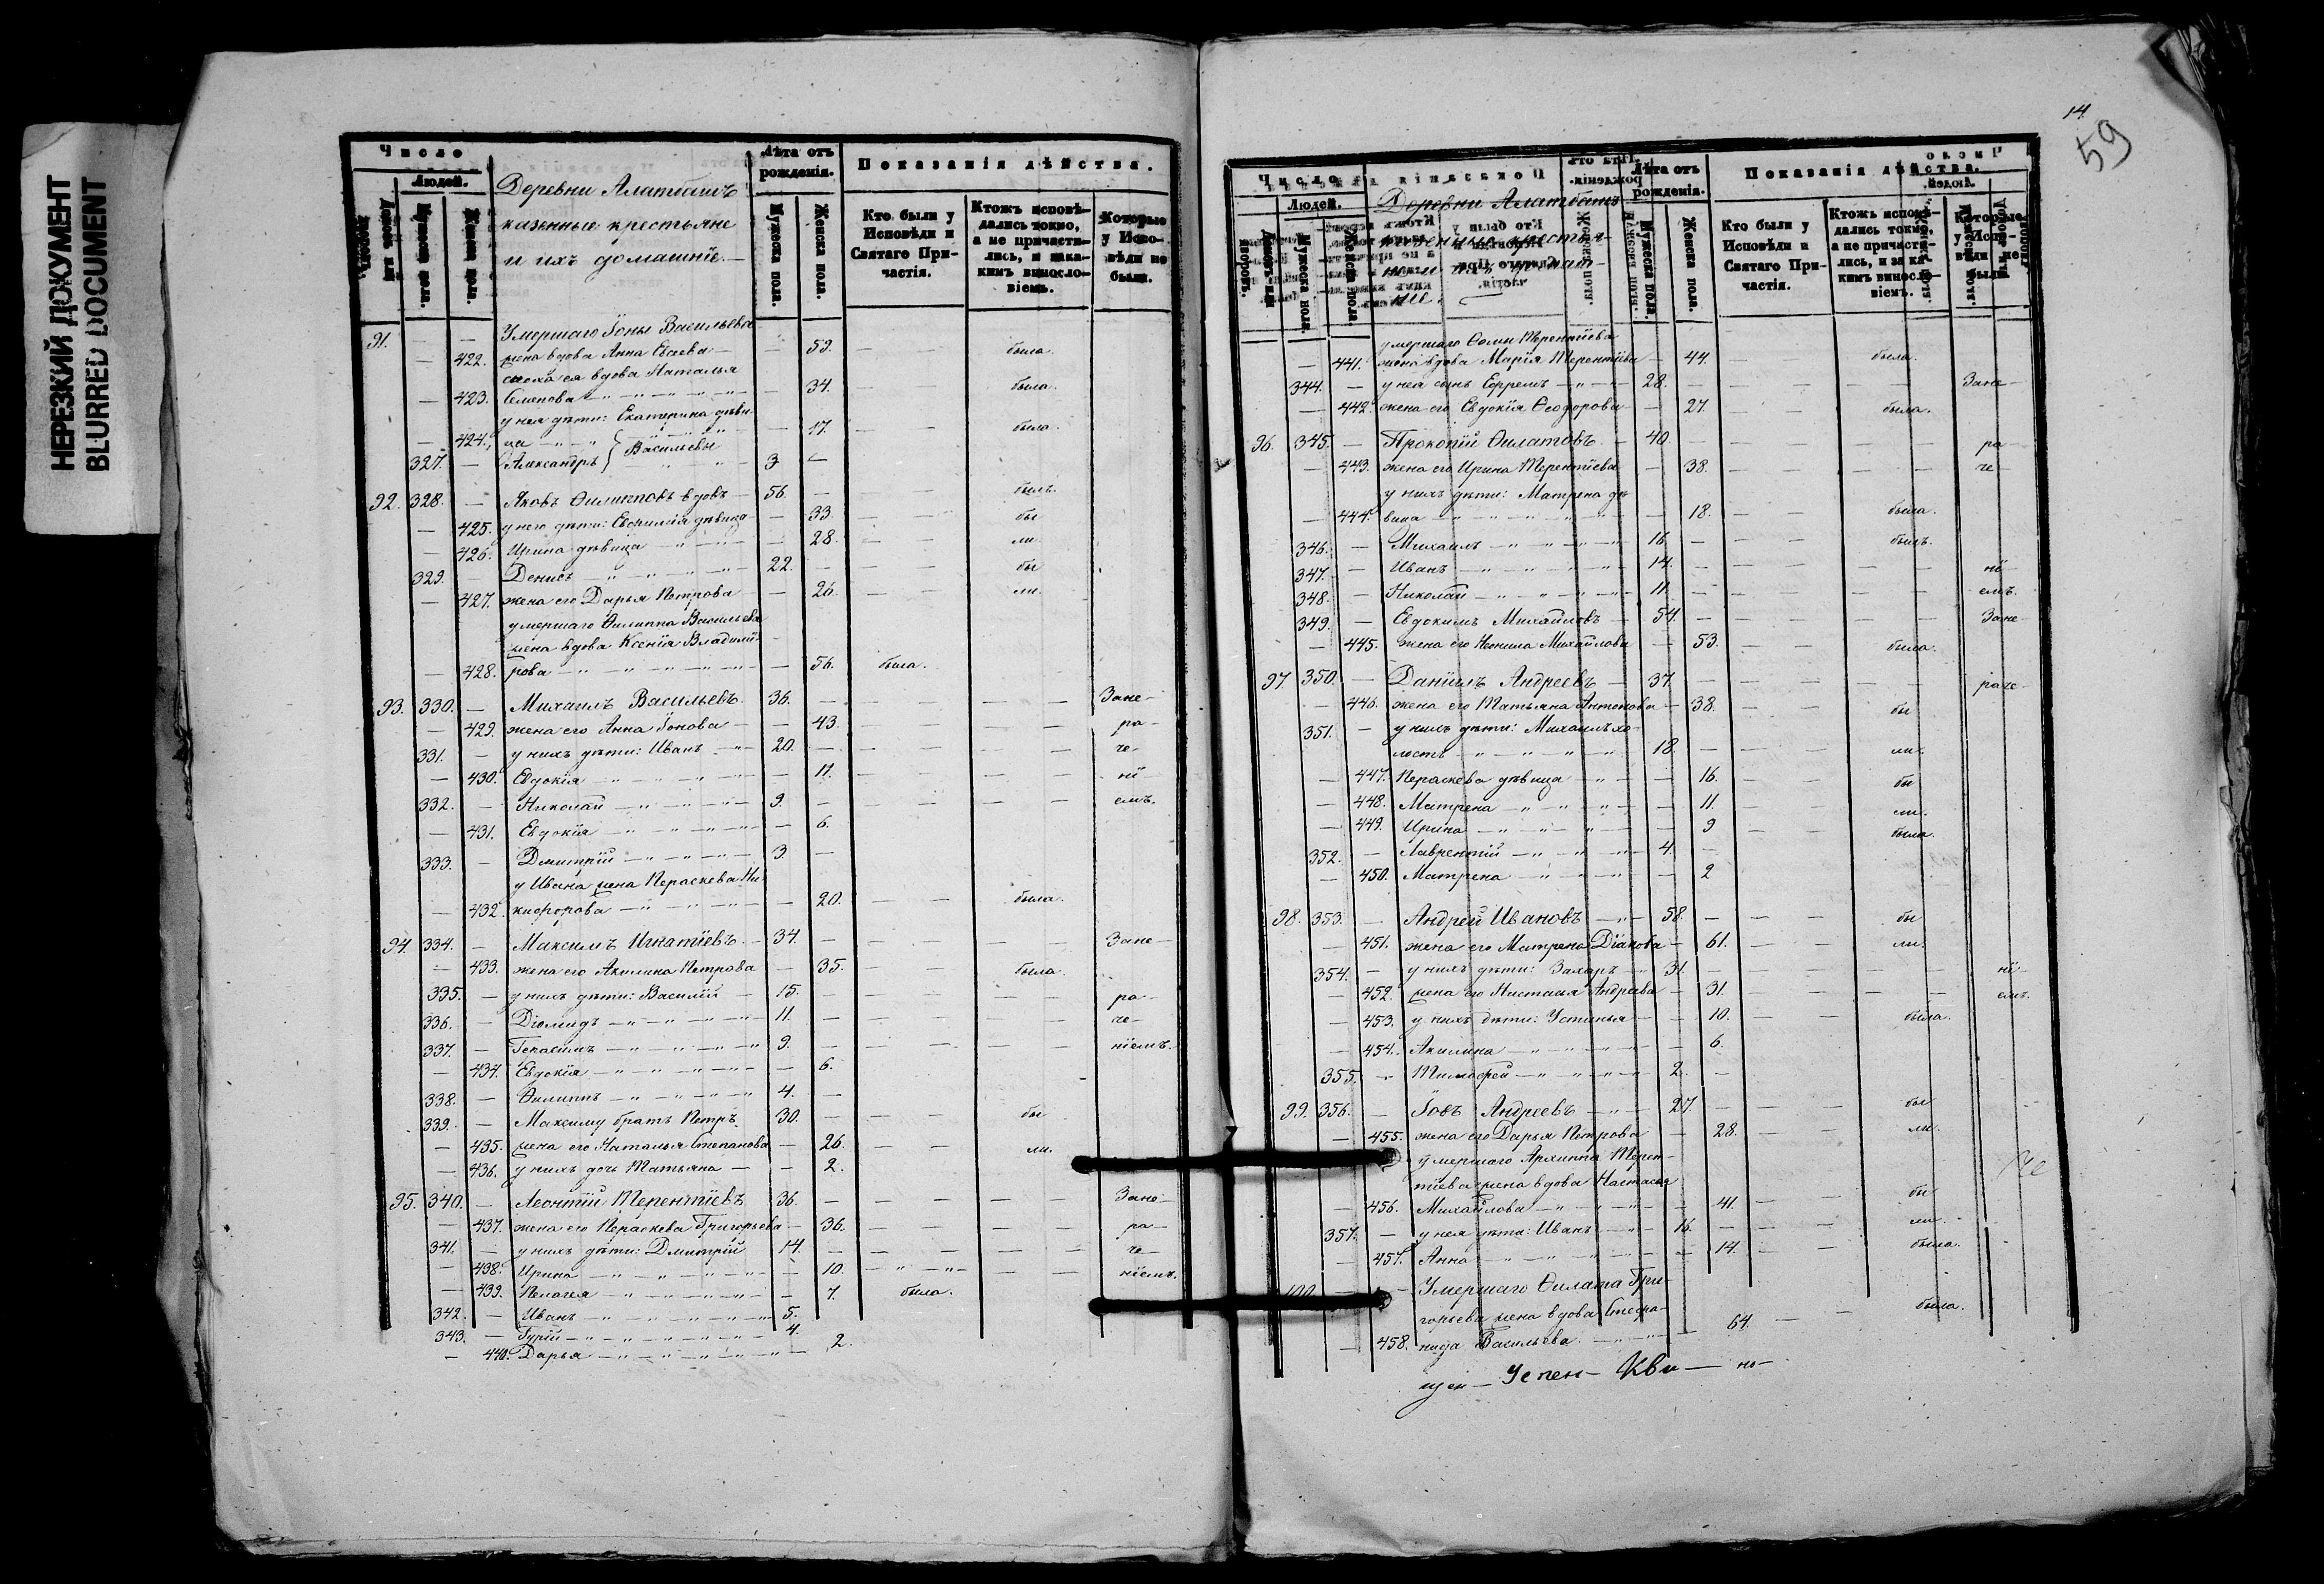 НЕРЕЗКИЙ ДОКУМЕНТ
BLURRED DOCUMENT
Число
Людей.
Мужеска пола.
Женска пола.
Деревни Алатбашъ
казенные крестьяне
и ихъ домашніе.
Лѣта отъ рожденія.
Мужеска пола.
Женска пола.
Показанія дѣйства.
Кто были у Исповѣди и Святаго Причастія.
Ктожъ исповѣдались токмо, а не причастились, и за какимъ винословіемъ.
Которые у Исповѣди не были.
91. — — Умершаго Іоны Васильева
— 422. жена вдова Анна Евсева — — 59. — — была.
сноха ея вдова Наталья
— 423. Семенова — — 34. — — была.
у нея дѣти: Екатерина дѣви-
— 424. ца — — 17. — — была.
327. — Александръ } Васильевы 3 —
92. 328. — Яковъ Филипповъ вдовъ — 56. — — — былъ.
— 425. у него дѣти: Евфимія дѣвица — 33. — — бы
— 426. Ирина дѣвица — — 28. — — ли.
329. — Денисъ — 22. — — — бы
— 427. жена его Дарья Петрова — 26. — — ли.
умершаго Филиппа Васильева
жена вдова Ксенія Владимі-
— 428. рова — — 56. была.
93. 330. — Михаилъ Васильевъ. 36. — — — — — Зане-
— 429. жена его Анна Іонова — — 43. — — — — ра-
331. — у нихъ дѣти: Иванъ — 20. — — — — че-
— 430. Евдокія — — 11. — — — — ні-
332. — Николай — 9. — — — — — емъ.
— 431. Евдокія — — 6.
333. — Дмитрій — 3. —
у Ивана жена Параскева Ни-
— 432. кифорова — — 20. — — была.
94. 334. — Максимъ Игнатіевъ — 34. — — — — — Зане-
— 433. жена его Акилина Петрова — 35. — — была.
335. — у нихъ дѣти: Василій — 15. — — — — — ра-
336. — Діомидъ — 11. — — — — — че-
337. — Герасимъ — 9. — — — — — ніемъ.
— 434. Евдокія — — 6.
338. — Филиппъ — 4. —
339. — Максиму братъ Петръ. 30. — — — бы
— 435. жена его Наталья Степанова — 26. — — ли.
— 436. у нихъ дочь Татьяна — — 2.
95. 340. — Леонтій Терентіевъ 36. — — — — — Зане-
— 437. жена его Параскева Григорьева — 36. — — — — ра-
341. — у нихъ дѣти: Дмитрій 14. — — — — — че-
— 438. Ирина — — 10. — — — — ніемъ.
— 439. Пелагея — — 7. была.
342. — Иванъ — 5.
343. — Гурій — 4.
— 440. Дарья — — 2.
14.
59
Число
Людей.
Мужеска пола.
Женска пола.
Деревни Алатбашъ
казенные крестья-
не и ихъ домаш-
ніе.
Лѣта отъ рожденія.
Мужеска пола.
Женска пола.
Показанія дѣйства.
Кто были у Исповѣди и Святаго Причастія.
Ктожъ исповѣдались токмо, а не причастились, и за какимъ винословіемъ.
Которые у Исповѣди не были
умершаго Ѳомы Терентіева
— 441. жена вдова Марія Терентіева — 44. — — была.
344. — у нея сынъ Ефремъ — 28. — — — — — Зане-
— 442. жена его Евдокія Ѳеодорова — 27. — — была.
96. 345. — Прокопій Филатовъ — 40. — — — — — ра
— 443. жена его Ирина Терентіева — 38. — — — — че
у нихъ дѣти: Матрена дѣ-
— 444. вица — — 18. — — была.
346. — Михаилъ — 16. — — — былъ.
347. — Иванъ — 14. — — — — — ні-
348. — Николай — 11. — — — — — емъ.
349. — Евдокимъ Михайловъ — 54. — — — — — Зане
— 445. жена его Неонила Михайлова — 53. — — была.
97. 350. — Даніилъ Андреевъ — 37. — — — — — раче-
— 446. жена его Татьяна Антонова — 38. — — бы
351. — у нихъ дѣти: Михаилъ хо-
лостъ — 18. — — — ли.
— 447. Параскева дѣвица — — 16. — — бы
— 448. Матрена — — 11. — — ли.
— 449. Ирина — — 9 — — была.
352. — Лаврентій — 4. —
— 450. Матрена — — 2
98. 353. — Андрей Ивановъ — 58. — — — бы
— 451. жена его Матрена Діанова — 61. — — ли.
354. — у нихъ дѣти: Захаръ — 31. — — — — — ні-
— 452. жена его Настасья Андреева — 31. — — — — емъ.
— 453. у нихъ дѣти: Устинья — — 10. — — была.
— 454. Акилина — — 6.
355. — Тимофей — 2. —
99. 356. — Іовъ Андреевъ — 27. — — — бы
— 455. жена его Дарья Петрова — 28. — — ли.
умершаго Архиппа Терен-
тіева жена вдова Настасья
— 456. Михайлова — — 41. — — бы
357. — у нея дѣти: Иванъ — 16. — — — ли.
— 457. Анна — — 14. — — была.
100. — — Умершаго Филата Гри-
горьева жена вдова Стефа-
— 458. нида Васильева — — 64. — — была.
щен — Успен — Кви — но —